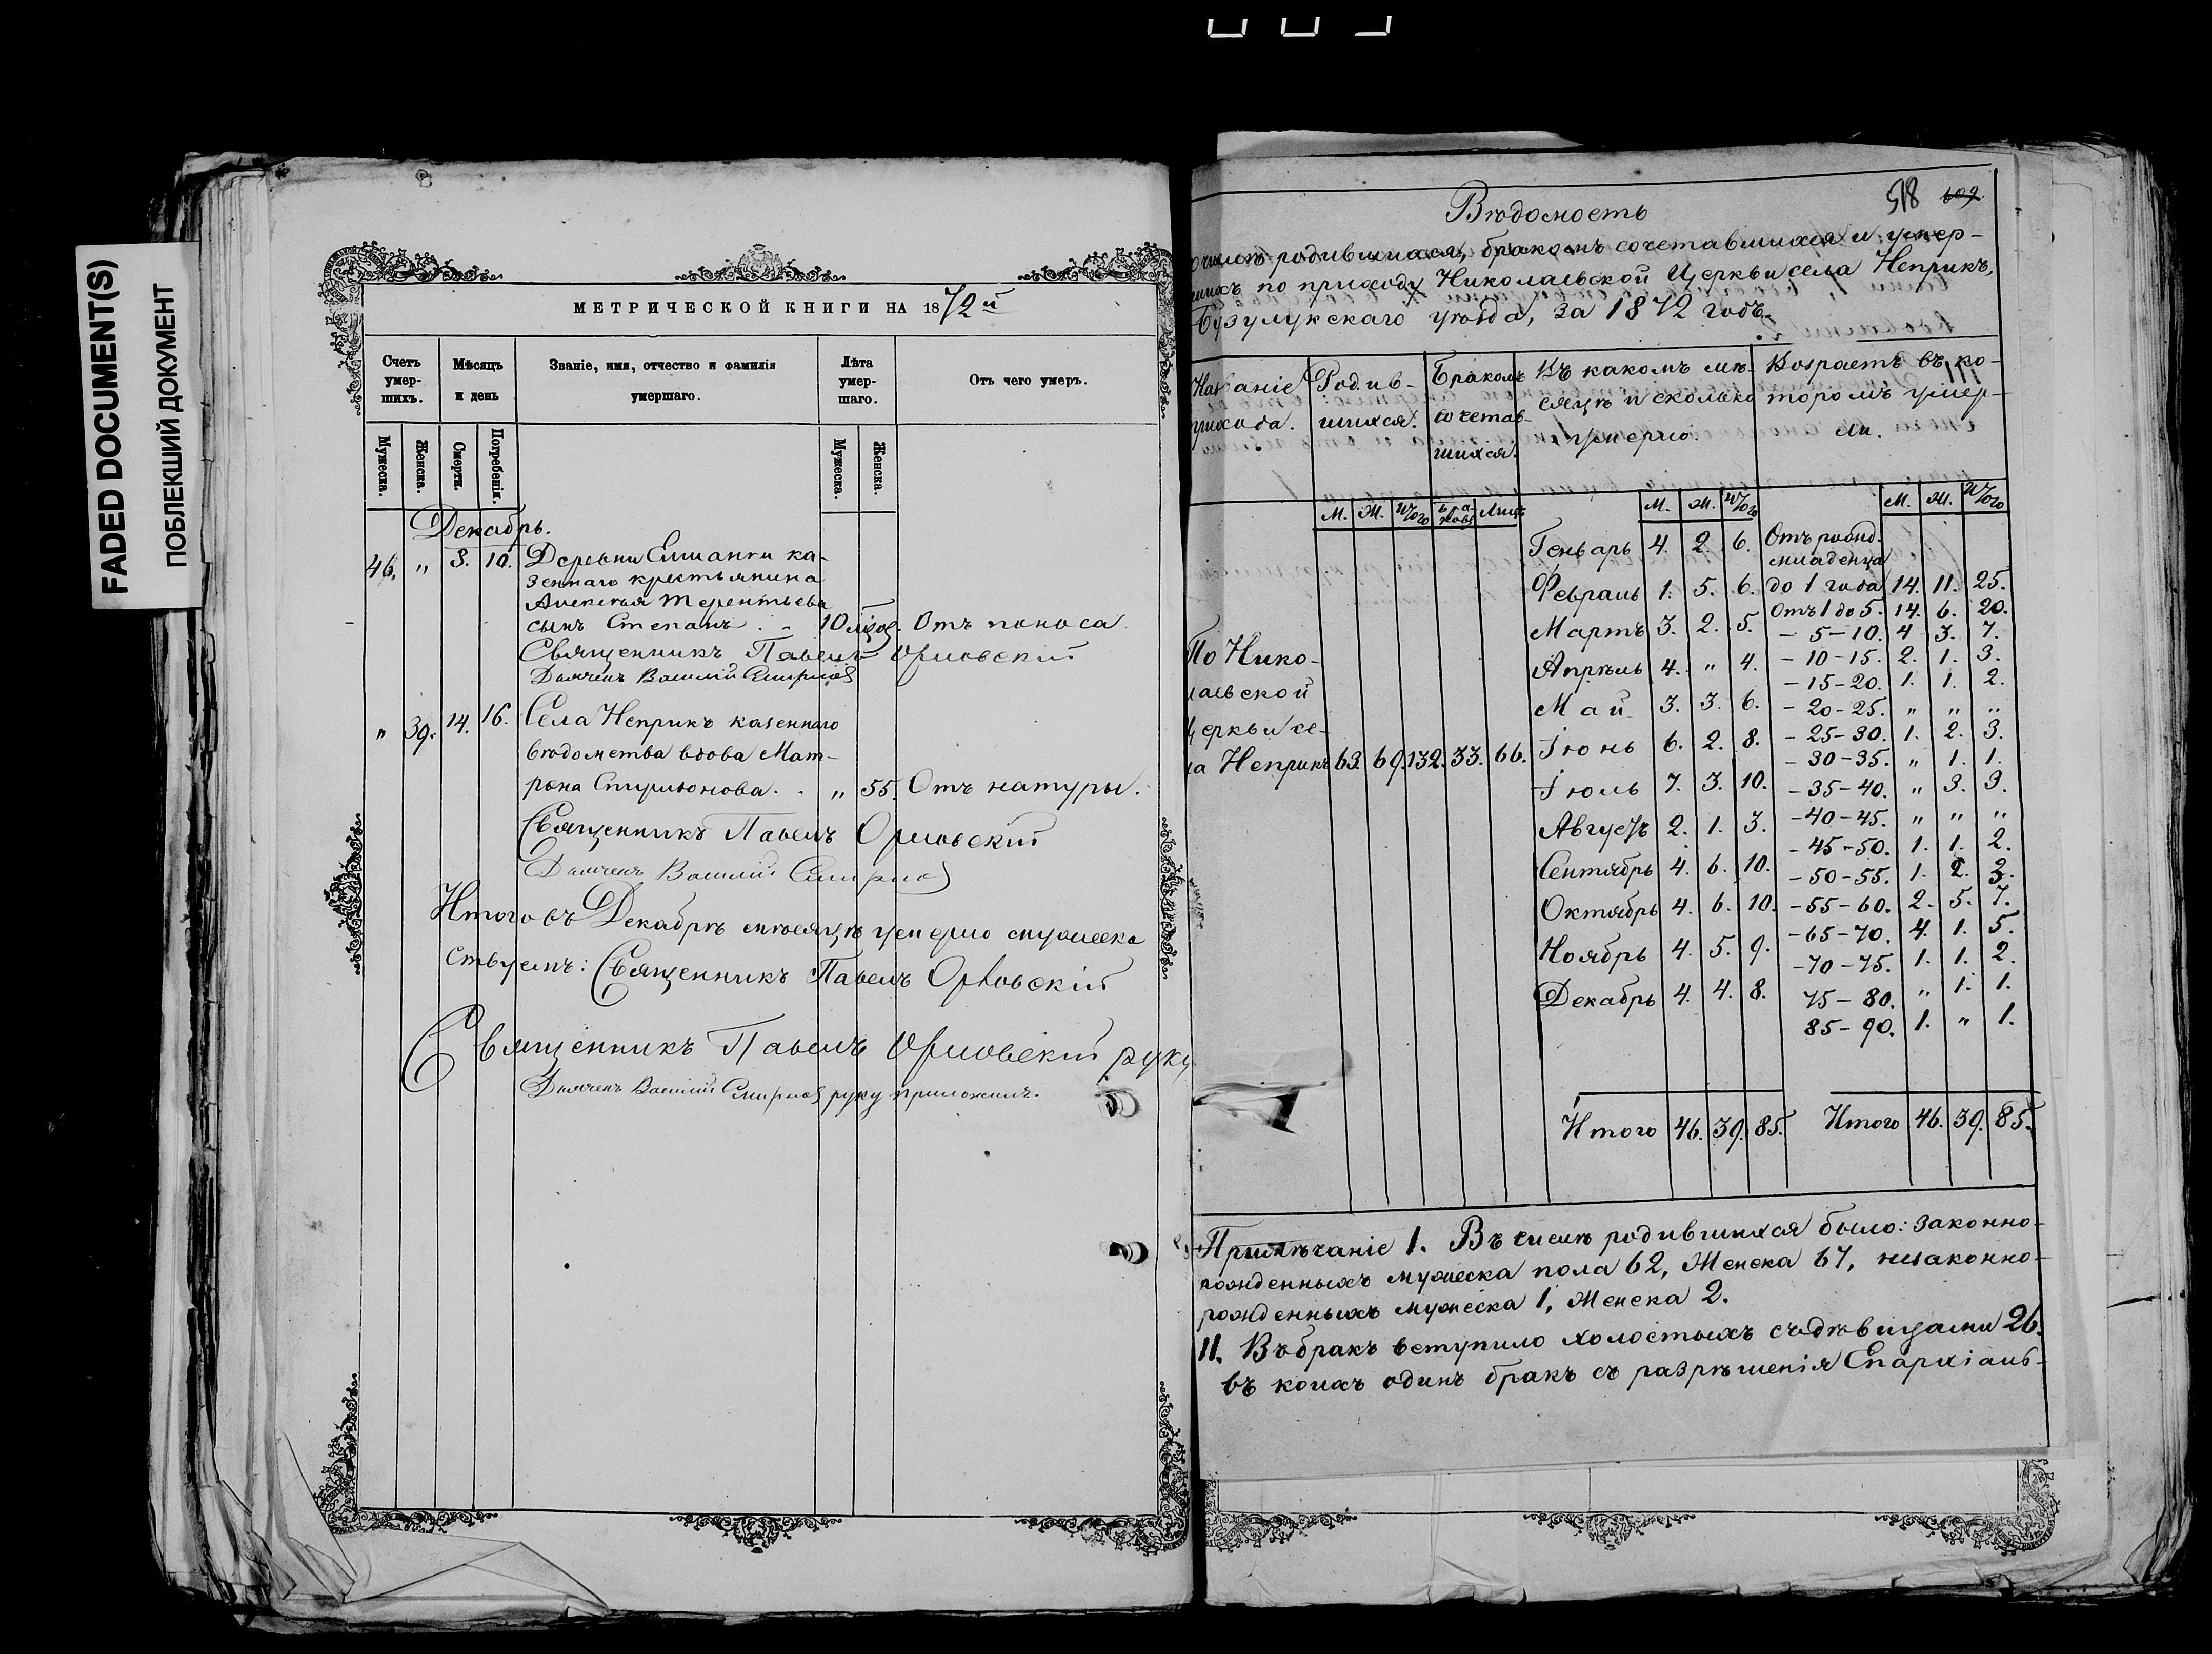 FADED DOCUMENT(S)
ПОБЛЕКШИЙ ДОКУМЕНТ
МЕТРИЧЕСКОЙ КНИГИ НА 1872й
Счетъ умер-шихъ.
Мѣсяцъ и день
Званіе, имя, отчество и фамилія умершаго.
Лѣта умер-шаго.
Отъ чего умеръ.
Мужеска. Женска. Смерти. Погребенія. Мужеска. Женска.
Декабрь.
46. " 8. 10. Деревни Елшанки ка-
зеннаго крестьянина
Алексѣя Терентьева
сынъ Степанъ . . 10 мѣсяц. Отъ поноса
Священникъ Павелъ Орловскій
Дьячекъ Василій Смирновъ
" 39. 14. 16. Села Неприкъ казеннаго
вѣдомства вдова Мат-
рона Спиридонова . . " 55. Отъ натуры.
Священникъ Павелъ Орловскій
Дьячекъ Василій Смирновъ
Итого въ Декабрѣ мѣсяцѣ умерло мужеска
Священникъ Павелъ Орловскій
Священникъ Павелъ Орловскій руку
Дьячекъ Василій Смирновъ руку приложилъ.
518 609
Вѣдомость
родившихся, бракомъ сочетавшихся и умер-
шихъ по приходу Николаевской Церкви села Неприкъ,
Бузулукскаго уѣзда, за 1872 годъ.
Названіе прихода.
Родив-шихся.
Бракомъ сочетав-шихся.
Въ какомъ мѣ-сяцѣ и сколько умерло.
Возрастъ въ ко-торомъ умер-ли.
М. Ж. Итого Бра-ковъ Лицъ М. Ж. Итого М. Ж. Итого
Генварь 4. 2. 6. Отъ рожд. младенца
Февраль 1. 5. 6. до 1 года 14. 11. 25.
Отъ 1 до 5. 14. 6. 20.
Мартъ 3. 2. 5. - 5-10. 4 3. 7.
По Нико-
Апрѣль 4. " 4. - 10-15. 2. 1. 3.
лаевской
- 15-20. 1. 1. 2.
Май 3. 3. 6. - 20-25. " " "
Церкви се-
- 25-30. 1. 2. 3.
ла Неприкъ 63. 69. 132. 33. 66. Іюнь 6. 2. 8.
- 30-35. " 1. 1.
Іюль 7. 3. 10. - 35-40. " 3. 3.
- 40-45. " " "
Августъ 2. 1. 3. - 45-50. 1. 1. 2.
Сентябрь 4. 6. 10. - 50-55. 1. 2. 3.
Октябрь 4. 6. 10. - 55-60. 2. 5. 7.
- 65-70. 4. 1. 5.
Ноябрь 4. 5. 9. - 70-75. 1. 1. 2.
Декабрь 4. 4. 8. 75-80. " 1. 1.
85-90. 1. " 1.
Итого 46. 39. 85. Итого 46. 39. 85.
Примѣчаніе 1. Въ числѣ родившихся было: законно-
рожденныхъ мужеска пола 62, Женска 67, незаконно-
рожденныхъ мужеска 1, Женска 2.
II. Въ бракъ вступило холостыхъ съ дѣвицами 26.
въ коихъ одинъ бракъ съ разрѣшенія Епархіаль-